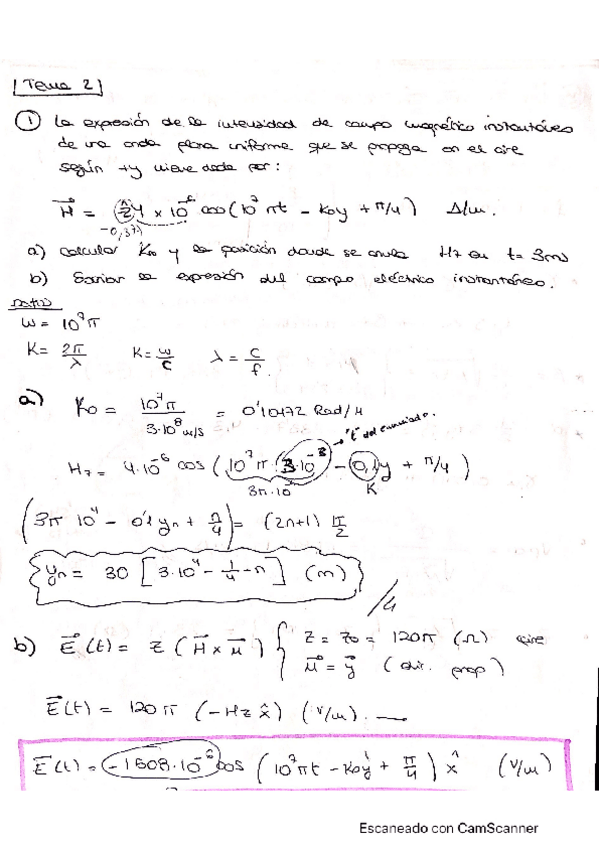 Tema 2
① La expresión de la intensidad de campo magnético instantáneo
de una onda plana uniforme que se propaga en el aire
según +y viene dada por:
H⃗ = ẑ 4 × 10⁻⁶ cos(10⁷πt - Koy + π/4) A/m.
a) Calcular Ko y la posición donde se anula Hz en t = 3ms
b) la expresión del campo eléctrico instantáneo.
datos
ω = 10⁷π
K = 2π/λ K = ω/c λ = c/f.
a) Ko = 10⁷π / 3·10⁸ m/s = 0'10472 Rad/M
"t" del enunciado.
Hz = 4·10⁻⁶ cos (10⁷π · 3·10⁻³ - 0,1y + π/4)
K
(3π 10⁴ - 0'1 yn + π/4) = (2n+1) π/2
yn = 30 [3·10⁴ - 1/4 - n] (m)
/4
b) E⃗(t) = Z (H⃗ × μ⃗) { Z = Zo = 120π (Ω) aire
μ⃗ = y⃗ (dir. prop)
E⃗(t) = 120π (-Hz x̂) (V/m).
E⃗(t) = -1508·10⁻⁶ cos (10⁷πt - Koy + π/4) x̂ (V/m)
Escaneado con CamScanner